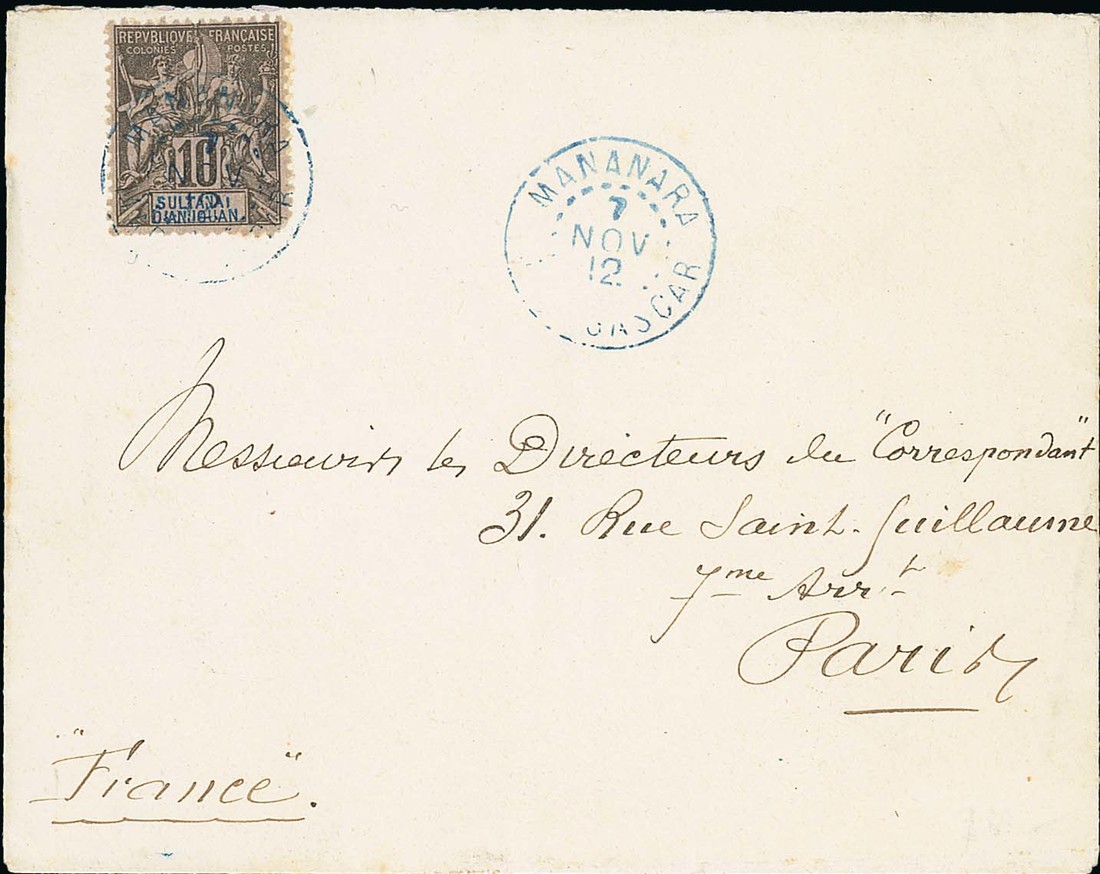 REPVBLIQVE FRANÇAISE
COLONIES POSTES
10
SULTANAT
D'ANJOUAN
MANANARA
7
NOV
12
GASCAR
Messieurs les Directeurs du "Correspondant"
31. Rue Saint-Guillaume
7me Arrt
Paris
"France".